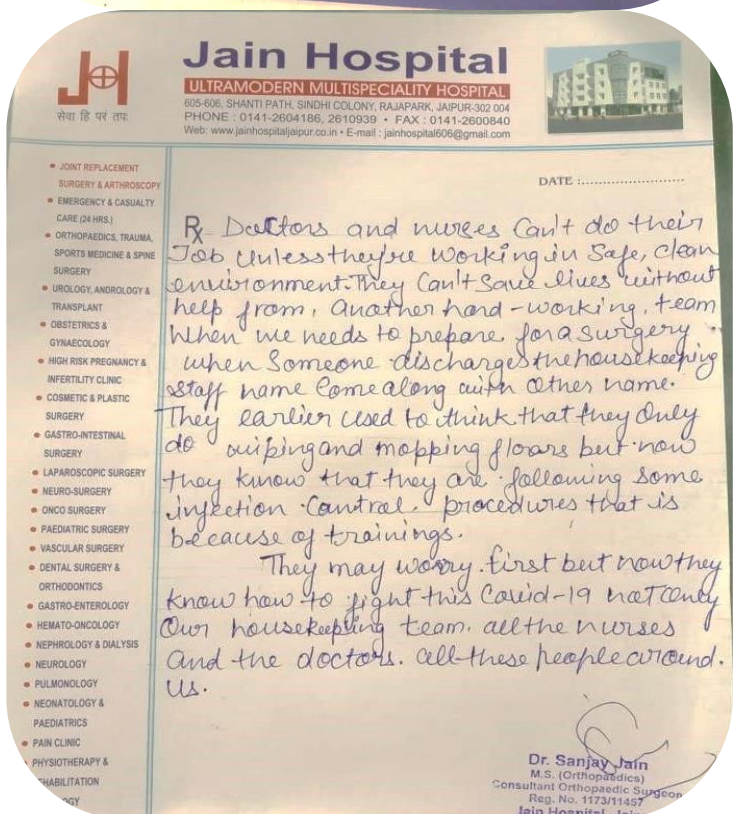 JH
सेवा हि परं तपः
Jain Hospital
ULTRAMODERN MULTISPECIALITY HOSPITAL
605-606, SHANTI PATH, SINDHI COLONY, RAJAPARK, JAIPUR-302 004
PHONE : 0141-2604186, 2610939 • FAX : 0141-2600840
Web: www.jainhospitaljaipur.co.in • E-mail : jainhospital606@gmail.com
DATE :........................
• JOINT REPLACEMENT
SURGERY & ARTHROSCOPY
• EMERGENCY & CASUALTY
CARE (24 HRS.)
• ORTHOPAEDICS, TRAUMA,
SPORTS MEDICINE & SPINE
SURGERY
• UROLOGY, ANDROLOGY &
TRANSPLANT
• OBSTETRICS &
GYNAECOLOGY
• HIGH RISK PREGNANCY &
INFERTILITY CLINIC
• COSMETIC & PLASTIC
SURGERY
• GASTRO-INTESTINAL
SURGERY
• LAPAROSCOPIC SURGERY
• NEURO-SURGERY
• ONCO SURGERY
• PAEDIATRIC SURGERY
• VASCULAR SURGERY
• DENTAL SURGERY &
ORTHODONTICS
• GASTRO-ENTEROLOGY
• HEMATO-ONCOLOGY
• NEPHROLOGY & DIALYSIS
• NEUROLOGY
• PULMONOLOGY
• NEONATOLOGY &
PAEDIATRICS
• PAIN CLINIC
PHYSIOTHERAPY &
HABILITATION
OGY
Rx Doctors and nurses Can't do their
Job unless they're working in Safe, clean
environment. They Can't Save lives without
help from, Another hard-working, team
When we needs to prepare for a surgery
when Someone discharges the housekeeping
staff name Come along with other name.
They earlier used to think that they only
do wiping and mopping floors but now
they know that they are following some
infection Control procedures that is
because of trainings.
They may worry first but now they
know how to fight this Covid-19 not only
Our housekeeping team. all the nurses
and the doctors. all these people around.
us.
Dr. Sanjay Jain
M.S. (Orthopaedics)
Consultant Orthopaedic Surgeon
Reg. No. 1173/11457
Jain Hospital, Jai